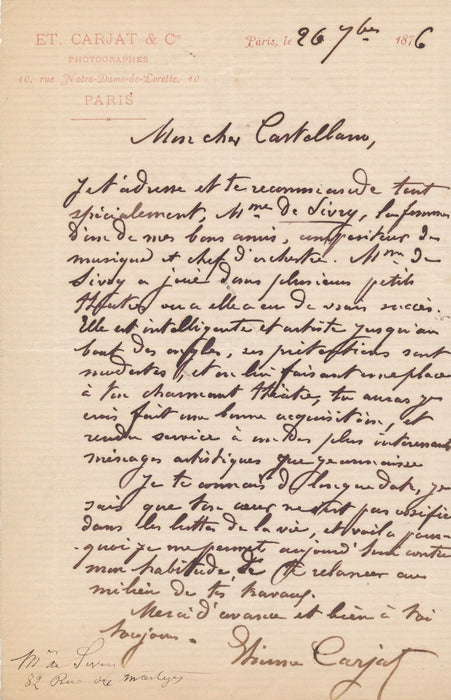 ET. CARJAT & Cie
PHOTOGRAPHES
10, rue Notre-Dame-de-Lorette, 10
PARIS
Paris, le 26 7bre 1876
Mon cher Castellano,
Je t'adresse et te recommande tout
spécialement, Mme de Sivry, la femme
d'un de mes bons amis, compositeur de
musique et chef d'orchestre. Mme de
Sivry a joué dans plusieurs petits
théâtres ou elle a eu de vrais succès.
Elle est intelligente et artiste jusqu'au
bout des ongles, ses prétentions sont
modestes, et en lui faisant une place
à ton charmant théâtre, tu auras je
crois fait une bonne acquisition, et
rendu service à un des plus intéressants
ménages artistiques que je connaisse
Je te connais de longue date, je
sais que ton cœur ne s'est pas ossifié
dans les luttes de la vie, et voila pour-
quoi je me permet aujourd'hui contre
mon habitude de te relancer au
milieu de tes travaux.
Merci d'avance et bien à toi
toujours.
Etienne Carjat
Mme de Sivry
82 Rue des Martyrs